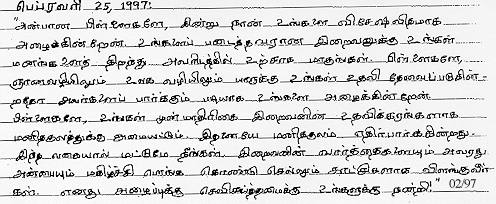 பெப்ரவரி 25, 1997:
"அன்பான பிள்ளைகளே, இன்று நான் உங்களை விசேஷ விதமாக
அழைக்கின்றேன். உங்களைப் படைத்தவரான இறைவனுக்கு உங்கள்
மனங்களைத் திறந்து அவரிடத்தில் உற்சாக மாகுங்கள். பிள்ளைகளே,
ஞானவழியிலும் உலக வழியிலும் யாருக்கு உங்கள் உதவி தேவைப்படுகின்-
றதோ அவர்களைப் பார்க்கும் படியாக உங்களை அழைக்கின்றேன்
பிள்ளைகளே, உங்கள் முன்மாதிரிகை இறைவனின் உதவிக்கரங்களாக
மனிதகுலத்துக்கு அமையட்டும். இதனையே மனிதகுலம் எதிர்பார்க்கின்றது.
இந்த வகையால் மட்டுமே நீங்கள், இறைவனின் வார்த்தைகளையும் அவரது
அன்பையும் மகிழ்ச்சி பொங்க கொண்டு செல்லும் சாட்சிகளாக விளங்குவீர்
கள். எனது அழைப்புக்கு செவிசாய்த்தமைக்கு உங்களுக்கு நன்றி!" 02/97